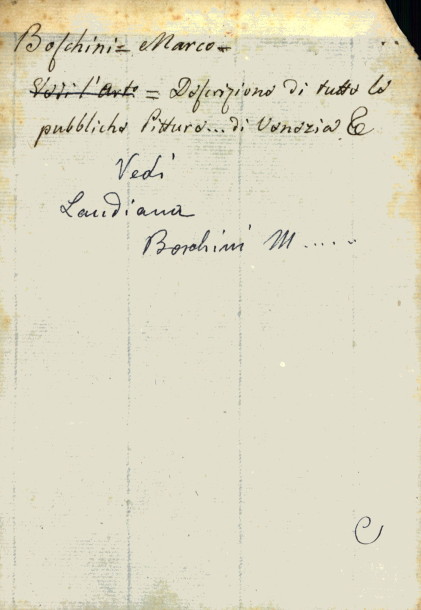 Boschini = Marco =
Vedi l'Arte = Descrizione di tutte le
pubbliche Pitture... di Venezia &
Vedi
Landiana
Boschini M.....
C